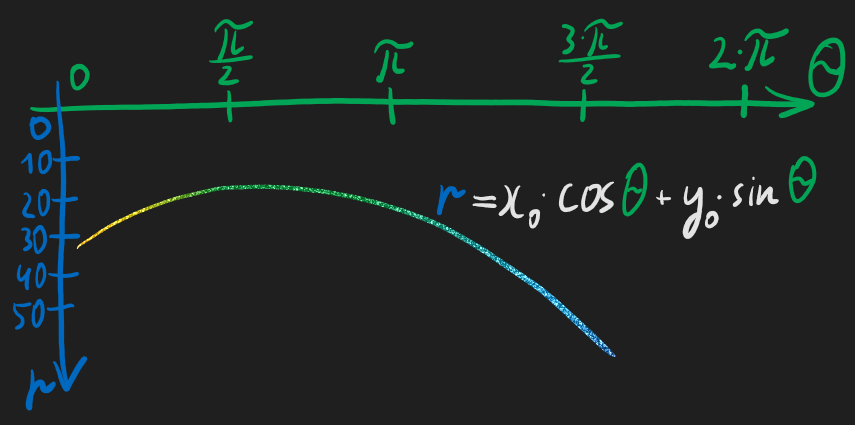 0 π/2 π 3·π/2 2·π θ
0
10
20
30
40
50
r
r = x₀·cos θ + y₀·sin θ